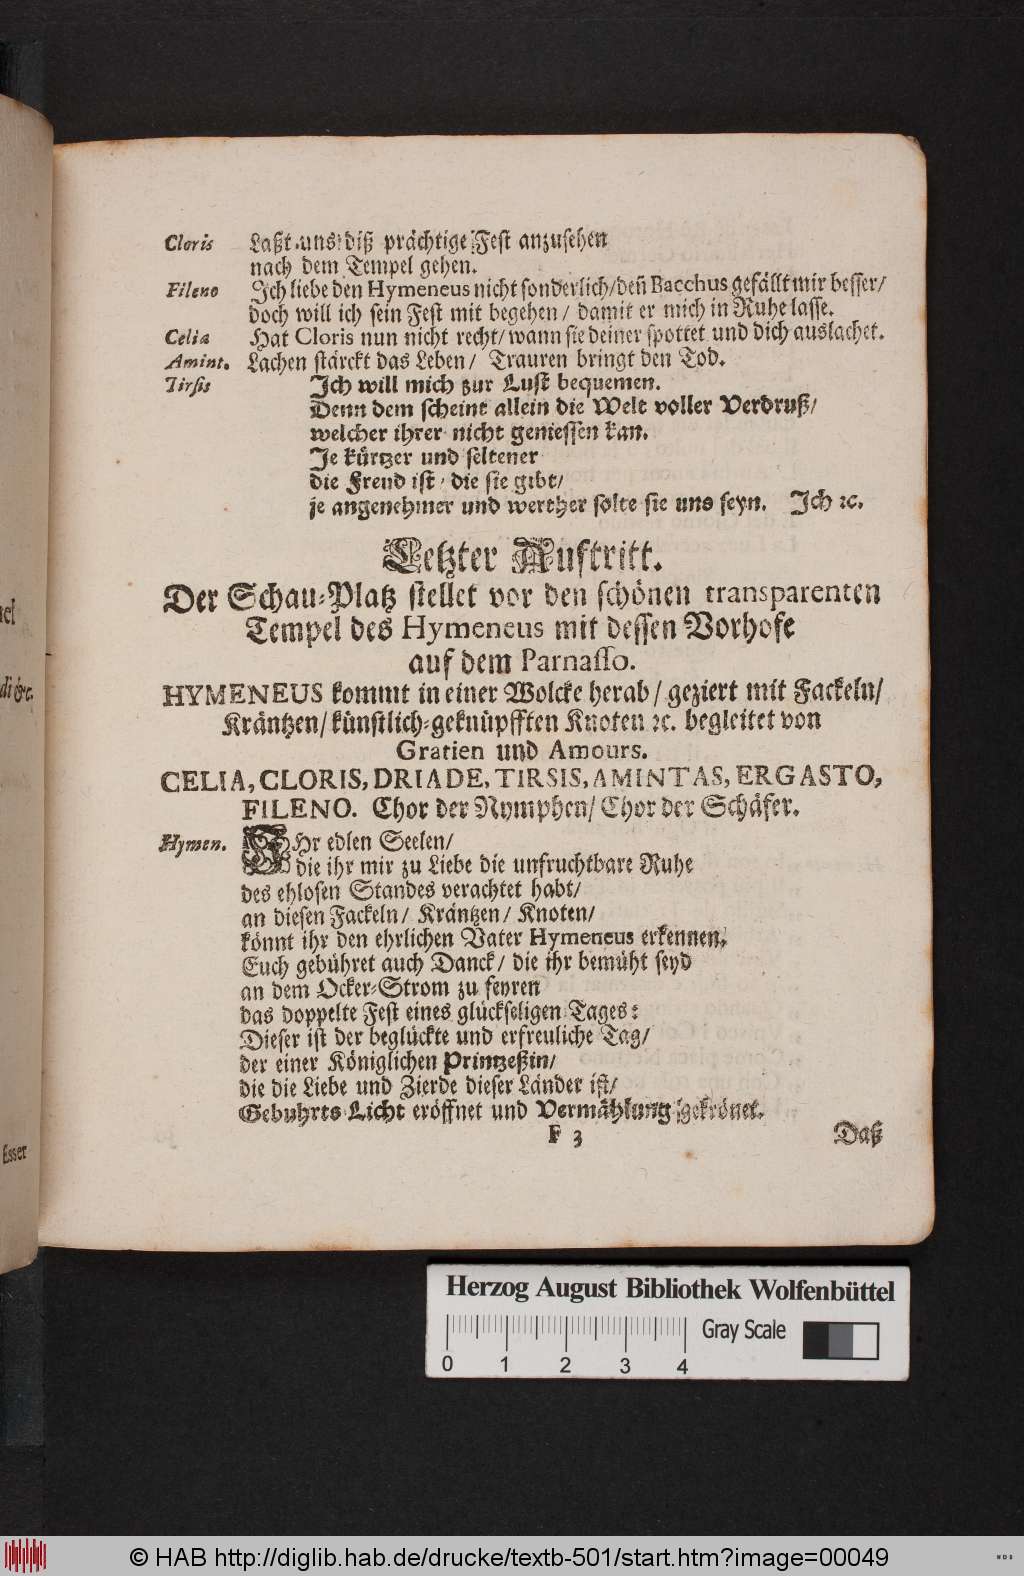 Cloris Laßt uns diß prächtige Fest anzusehen
nach dem Tempel gehen.
Fileno Ich liebe den Hymeneus nicht sonderlich/deñ Bacchus gefällt mir besser/
doch will ich sein Fest mit begehen/ damit er mich in Ruhe lasse.
Celia Hat Cloris nun nicht recht/wann sie deiner spottet und dich auslachet.
Amint. Lachen stärckt das Leben/ Trauren bringt den Tod.
Tirsis Ich will mich zur Lust bequemen.
Denn dem scheint allein die Welt voller Verdruß/
welcher ihrer nicht geniessen kan.
Je kürtzer und seltener
die Freud ist/ die sie gibt/
je angenehmer und werther solte sie uns seyn. Ich ꝛc.
Letzter Auftritt.
Der Schau-Platz stellet vor den schönen transparenten
Tempel des Hymeneus mit dessen Vorhofe
auf dem Parnasso.
HYMENEUS kommt in einer Wolcke herab/ geziert mit Fackeln/
Kräntzen/ künstlich-geknüpfften Knoten ꝛc. begleitet von
Gratien und Amours.
CELIA, CLORIS, DRIADE, TIRSIS, AMINTAS, ERGASTO,
FILENO. Chor der Nymphen/ Chor der Schäfer.
Hymen. IHr edlen Seelen/
die ihr mir zu Liebe die unfruchtbare Ruhe
des ehlosen Standes verachtet habt/
an diesen Fackeln/ Kräntzen/ Knoten/
könnt ihr den ehrlichen Vater Hymeneus erkennen.
Euch gebühret auch Danck/ die ihr bemüht seyd
an dem Ocker-Strom zu feyren
das doppelte Fest eines glückseligen Tages:
Dieser ist der beglückte und erfreuliche Tag/
der einer Königlichen Printzeßin/
die die Liebe und Zierde dieser Länder ist/
Gebuhrts-Licht eröffnet und Vermählung gekrönet.
F 3 Daß
di &c.
Esser
Herzog August Bibliothek Wolfenbüttel
Gray Scale
0 1 2 3 4
© HAB http://diglib.hab.de/drucke/textb-501/start.htm?image=00049